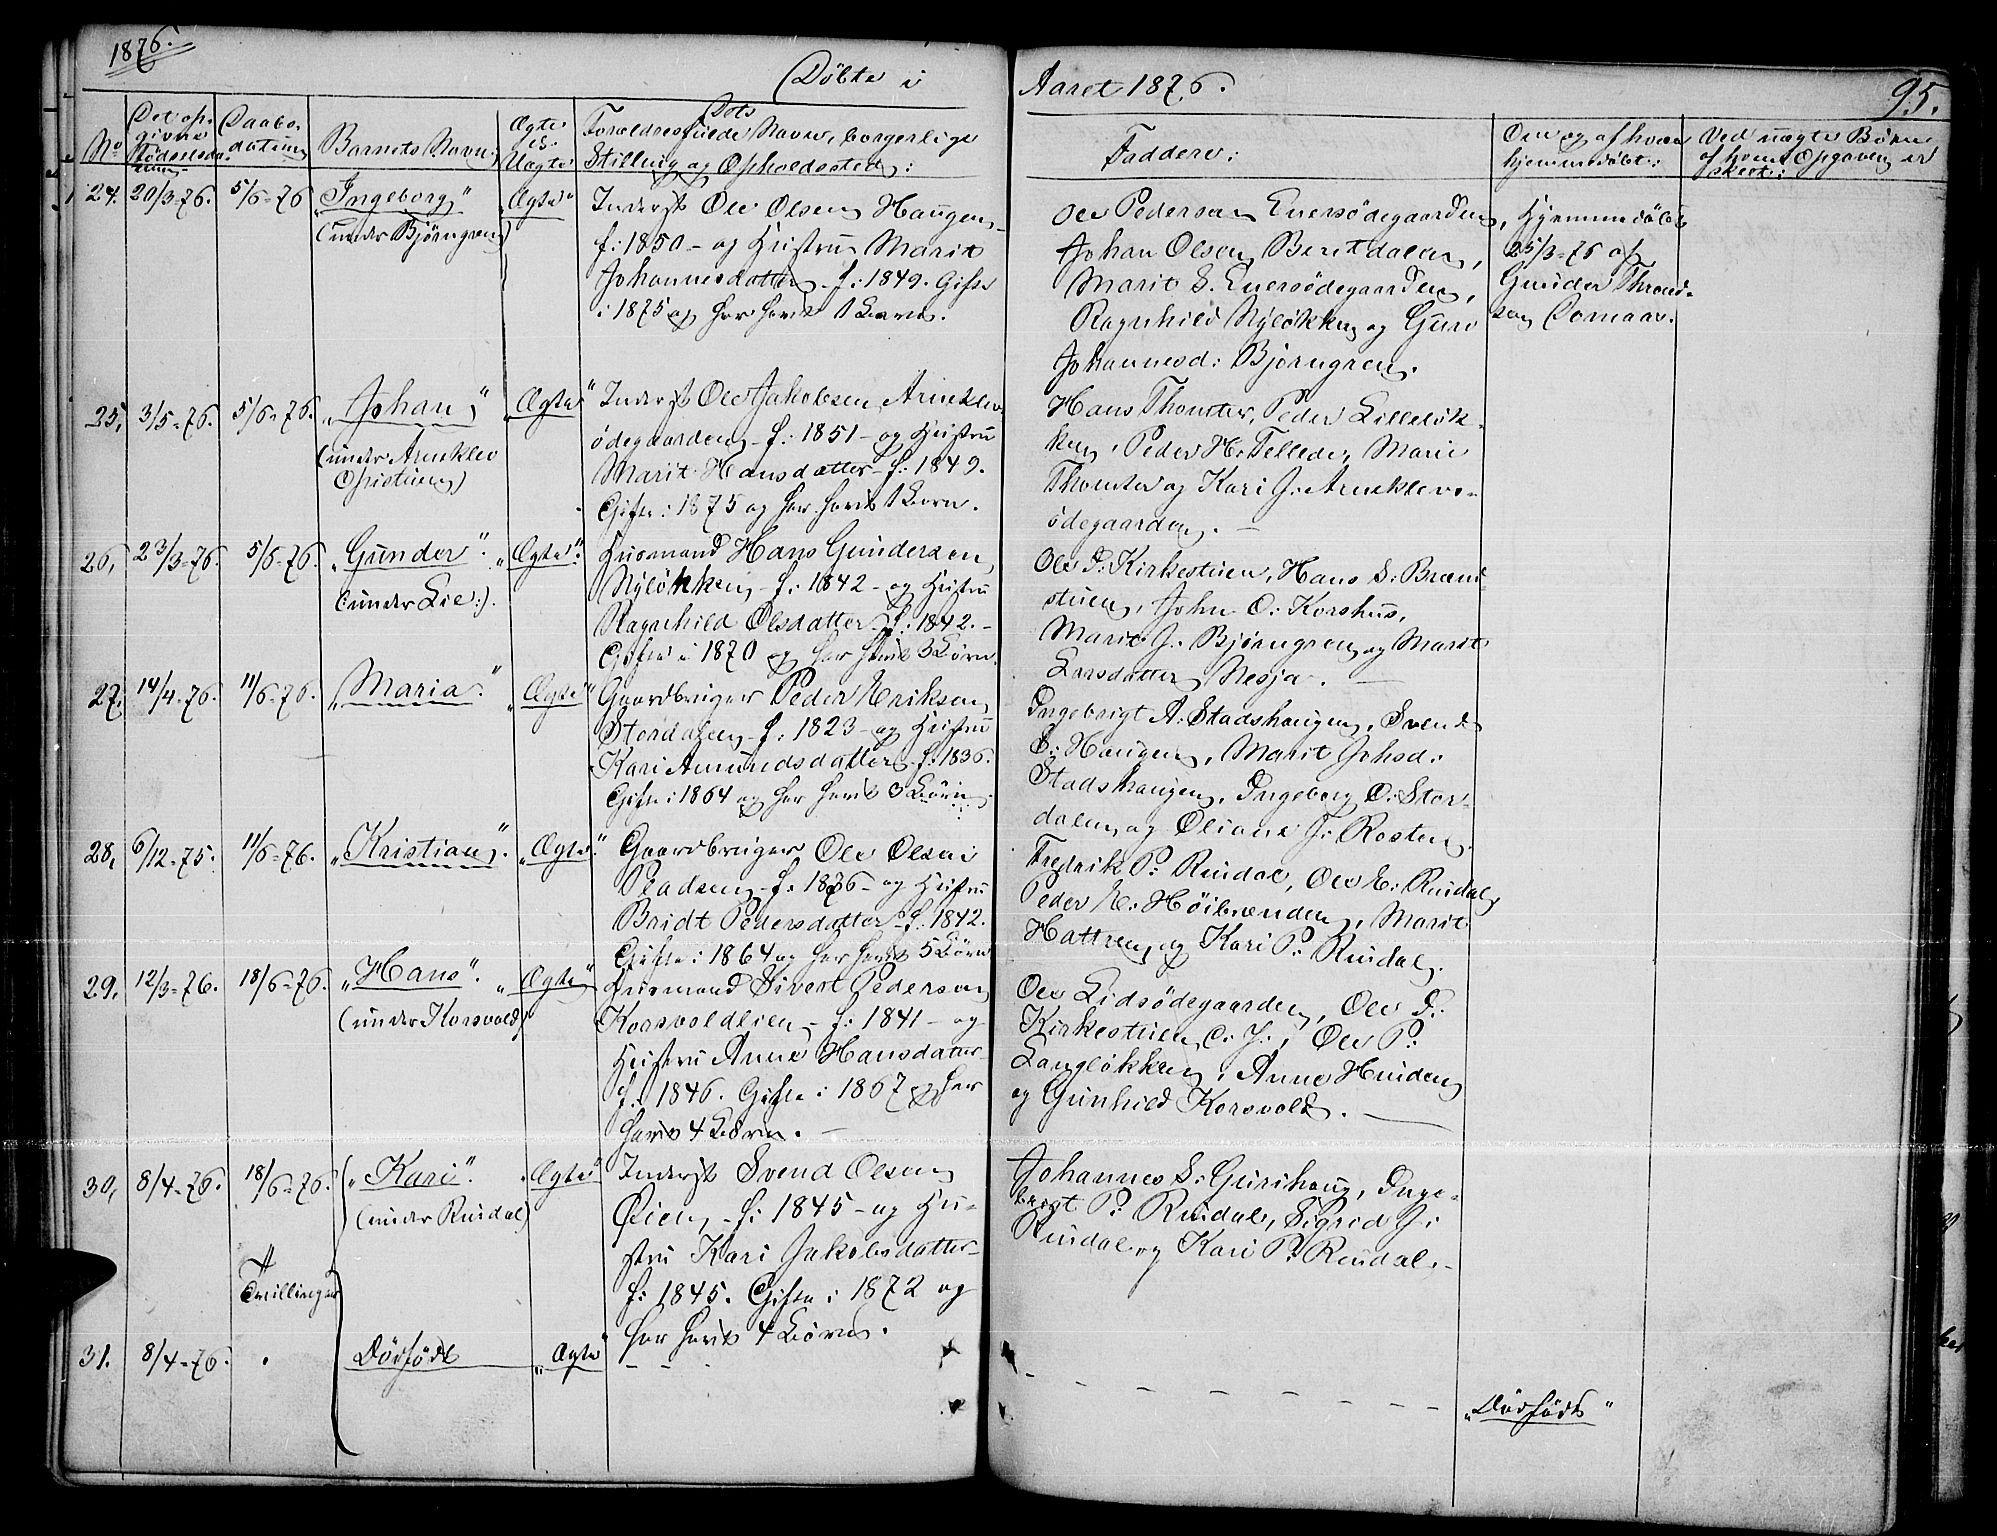 1876.
Döbte i
Aaret 1876.
95.
No
Det op-
givne
Födselsda-
tum
Daabs-
datum
Barnets Navn:
Ægte
el.
Uægte
Dets
Forældres fulde Navn, borgerlige
Stilling og Opholdssted:
Faddere:
Om og af hvem
hjemmedöbt:
Ved uægte Börn
af hvem Opgaven er
skeet:
24. 20/3-76. 5/6-76 "Ingeborg" "Ægte"
(under Björngren)
Inderst Ole Olsen Haugen
f: 1850 - og Hustru Marit
Johannesdatter - f: 1849. Gifte
i 1875 og har havt 1 Barn.
Ole Pedersen Enersödegaarden,
Johan Olsen Beritdalen,
Marit S. Enersödegaarden,
Ragnhild Nylökken og Guri
Johannesd: Björngren.
Hjemmedöbt
25/3-76 af
Gunder Thrond-
sen Comaar.
25, 3/5-76. 5/6-76. "Johan" "Ægte"
(under Arneklev
Opistuen)
Inderst Ole Jakobsen Arneklev-
ödegaarden - f: 1851 - og Hustru
Marit Hansdatter - f: 1849.
Gifte i 1875 og har havt 1 Barn.
Hans Thomter, Peder Lillelök-
ken, Peder H. Tellede, Marie
Thomter og Kari J. Arneklevs-
ödegaarden. -
26, 23/3-76. 5/6-76. "Gunder". "Ægte".
(under Lie:).
Husmand Hans Gundersen
Nylökken - f: 1842 - og Hustru
Ragnhild Olsdatter - f: 1842. -
Gifte i 1870 og har havt 3 Börn.
Ole P. Kirkestuen, Hans S. Brænd-
stuen, John O. Korshus,
Marit J. Björngren og Marit
Larsdatter Nesja. -
27. 14/4-76. 11/6-76. "Maria." "Ægte"
Gaardbruger Peder Eriksen
Stordalen - f: 1823 - og Hustru
Kari Amundsdatter - f: 1836.
Gifte i 1864 og har havt 3 Börn.
Ingebrigt A. Stadshaugen, Svend
E. Haugen, Marit Johsd:
Stadshaugen, Ingeborg O. Stor-
dalen og Oliane J. Rosten.
28, 6/12-75. 11/6-76. "Kristian". "Ægte".
Gaardbruger Ole Olsen
Pladsen - f: 1836 - og Hustru
Bridt Pedersdatter - f: 1842.
Gifte i 1864 og har havt 5 Börn
Fredrik P. Rindal, Ole E. Rindal,
Peder E. Höibrænden, Marit
Hattren og Kari P. Rindal.
29, 12/3-76. 18/6-76. "Hans". "Ægte"
(under Korsvold)
Husmand Sivert Pedersen
Korsvoldlien - f: 1841 - og
Hustru Anne Hansdatter -
f: 1846. Gifte i 1867 og har
havt 4 Börn. -
Ole Lidsödegaarden, Ole P.
Kirkestuen, Ole P.
Langlökken, Anne Hinden
og Gunhild Korsvold. -
30, 8/4-76. 18/6-76. "Kari". "Ægte"
(under Rindal)
Inderst Svend Olsen
Öien - f: 1845 - og Hu-
stru Kari Jakobsdatter -
f: 1845. Gifte i 1872 og
har havt 4 Börn.
Johannes S. Gurihaug, Inge-
brigt P. Rindal, Sigrid J.
Rindal og Kari P. Rindal. -
Tvillinger
31. 8/4-76. Dödfödt "Ægte"
"Dödfödt"